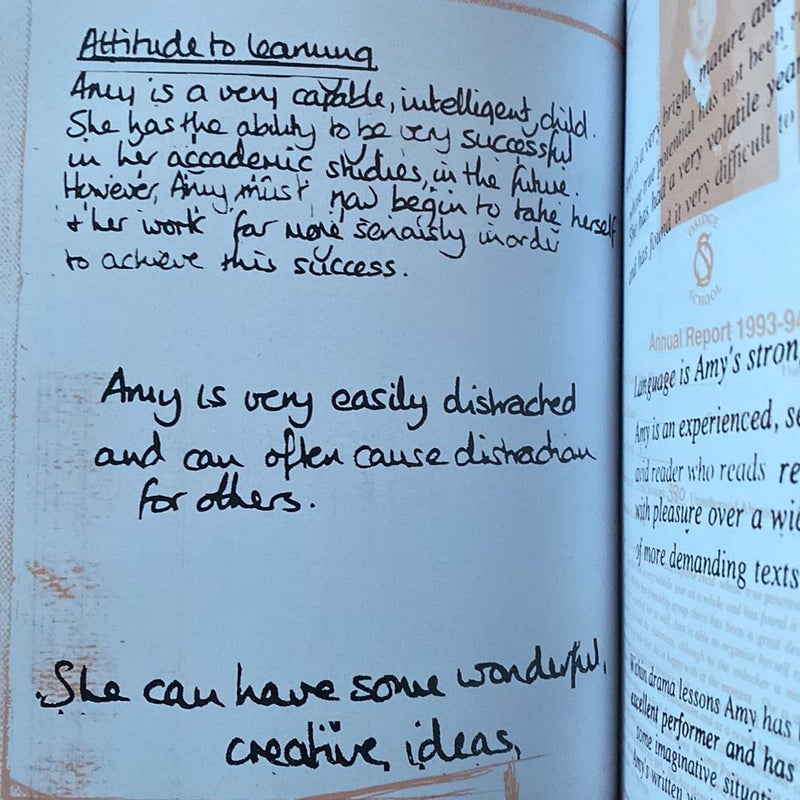 Attitude to learning
Amy is a very capable, intelligent, child.
She has the ability to be very successful
in her accademic studies, in the future.
However, Amy must, now begin to take herself
+ her work far more seriously in order
to achieve this success.
Amy is very easily distracted
and can often cause distraction
for others.
She can have some wonderful,
creative, ideas,
very bright, mature and
true potential has not been
She has had a very volatile year
and has found it very difficult to
OSIDGE
SCHOOL
Annual Report 1993-94
Language is Amy's stron
Amy is an experienced, se
avid reader who reads re
with pleasure over a wid
of more demanding texts
Within drama lessons Amy has
excellent performer and has
some imaginative situatio
Amy's written w